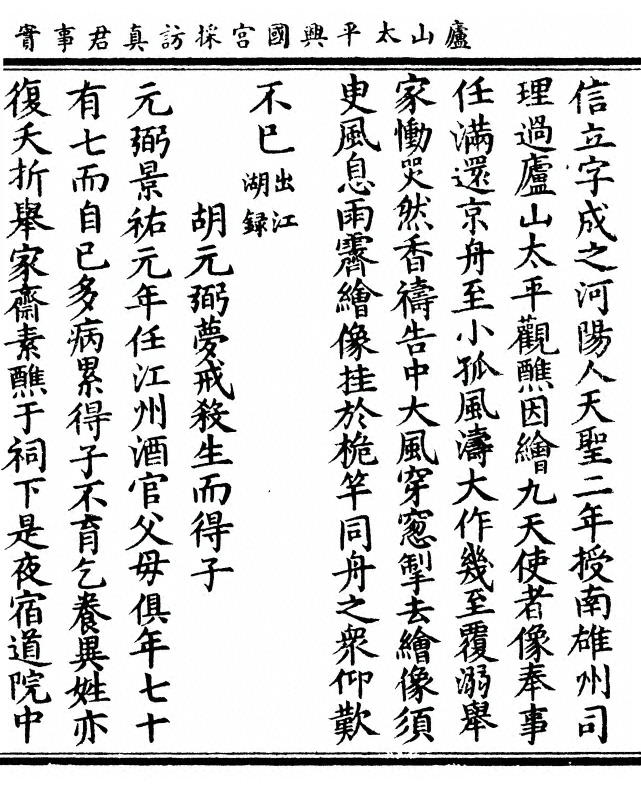 廬山太平興國宮採訪真君事實
信立字成之河陽人天聖二年授南雄州司
理過廬山太平觀醮因繪九天使者像奉事
任滿還京舟至小孤風濤大作幾至覆溺舉
家慟哭然香禱告中大風穿窻掣去繪像須
臾風息雨霽繪像挂於桅竿同舟之衆仰歎
不已出江湖録
胡元弼夢戒殺生而得子
元弼景祐元年任江州酒官父毋俱年七十
有七而自已多病累得子不育乞養異姓亦
復夭折舉家齋素醮于祠下是夜宿道院中